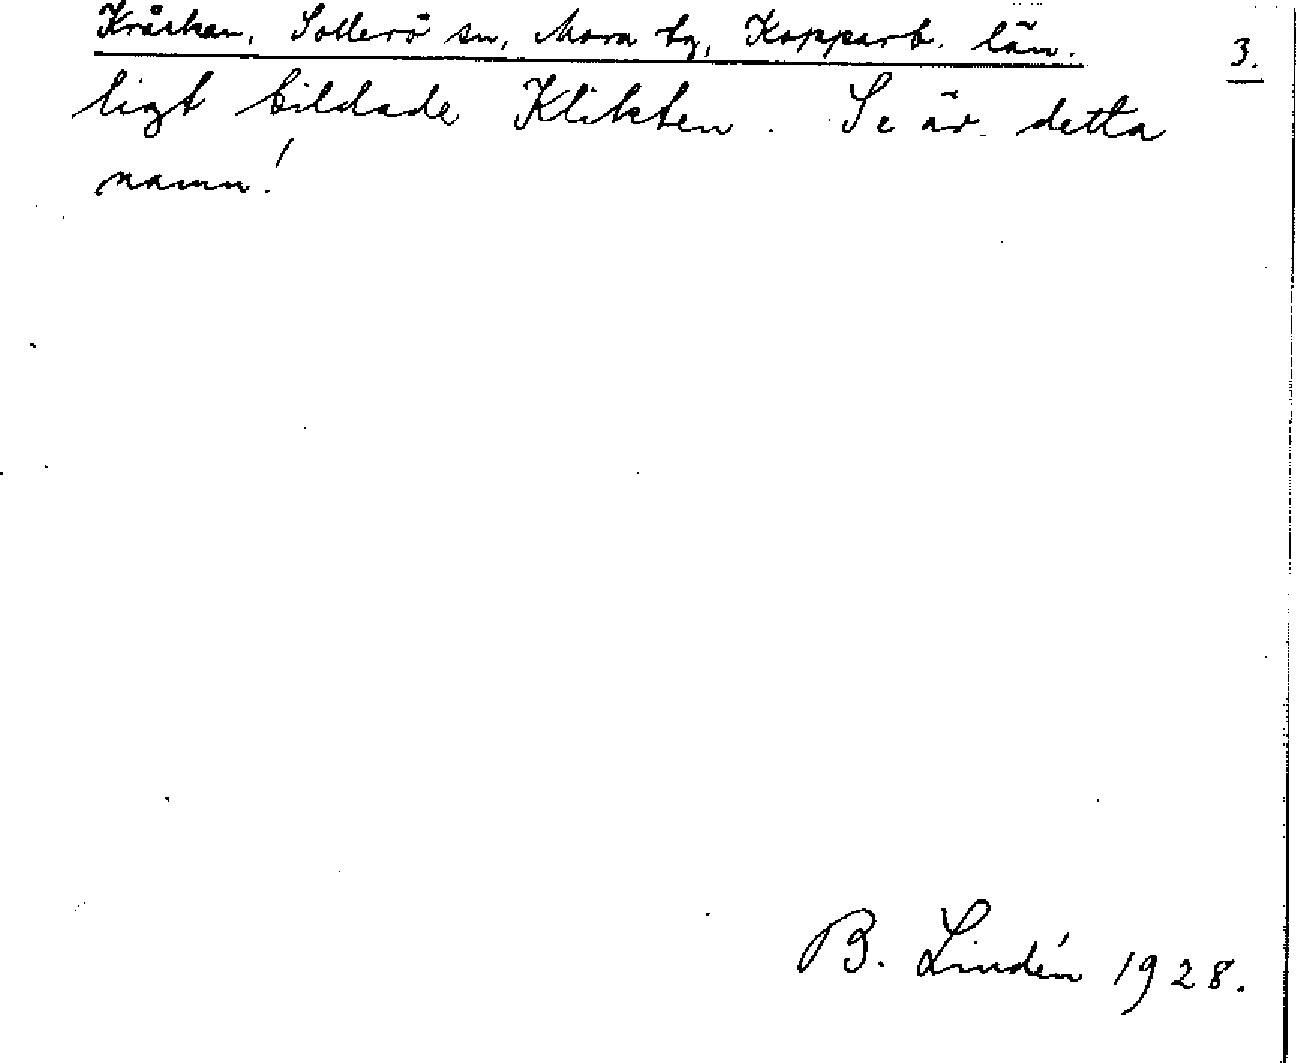 Kråskan, Sollerö sn, Mora tg, Kopparb. län. 3.
ligt bildade Klikten. Se äv. detta
namn!
B. Lindén 1928.